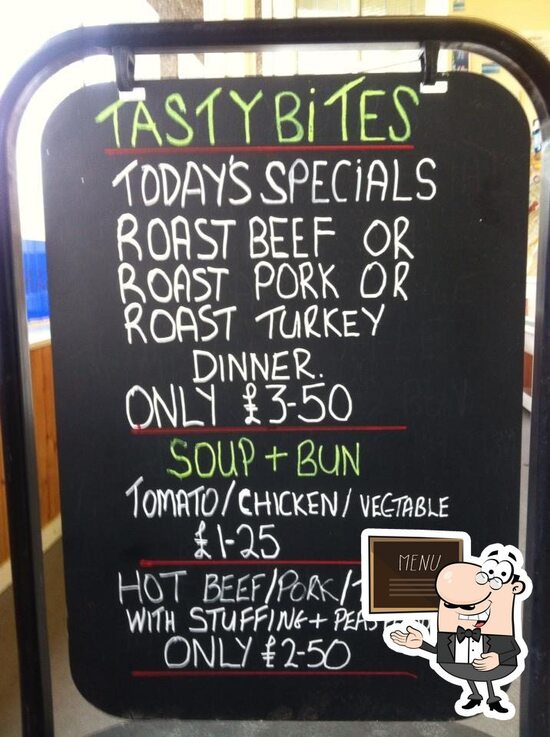 TASTY BiTES
TODAY'S SPECiALS
ROAST BEEF OR
ROAST PORK OR
ROAST TURKEY
DINNER.
ONLY £3-50
SOUP + BUN
TOMATO/CHICKEN/VEGTABLE
£1-25
HOT BEEF/PORK/
WITH STUFFING+
ONLY £2-50
MENU